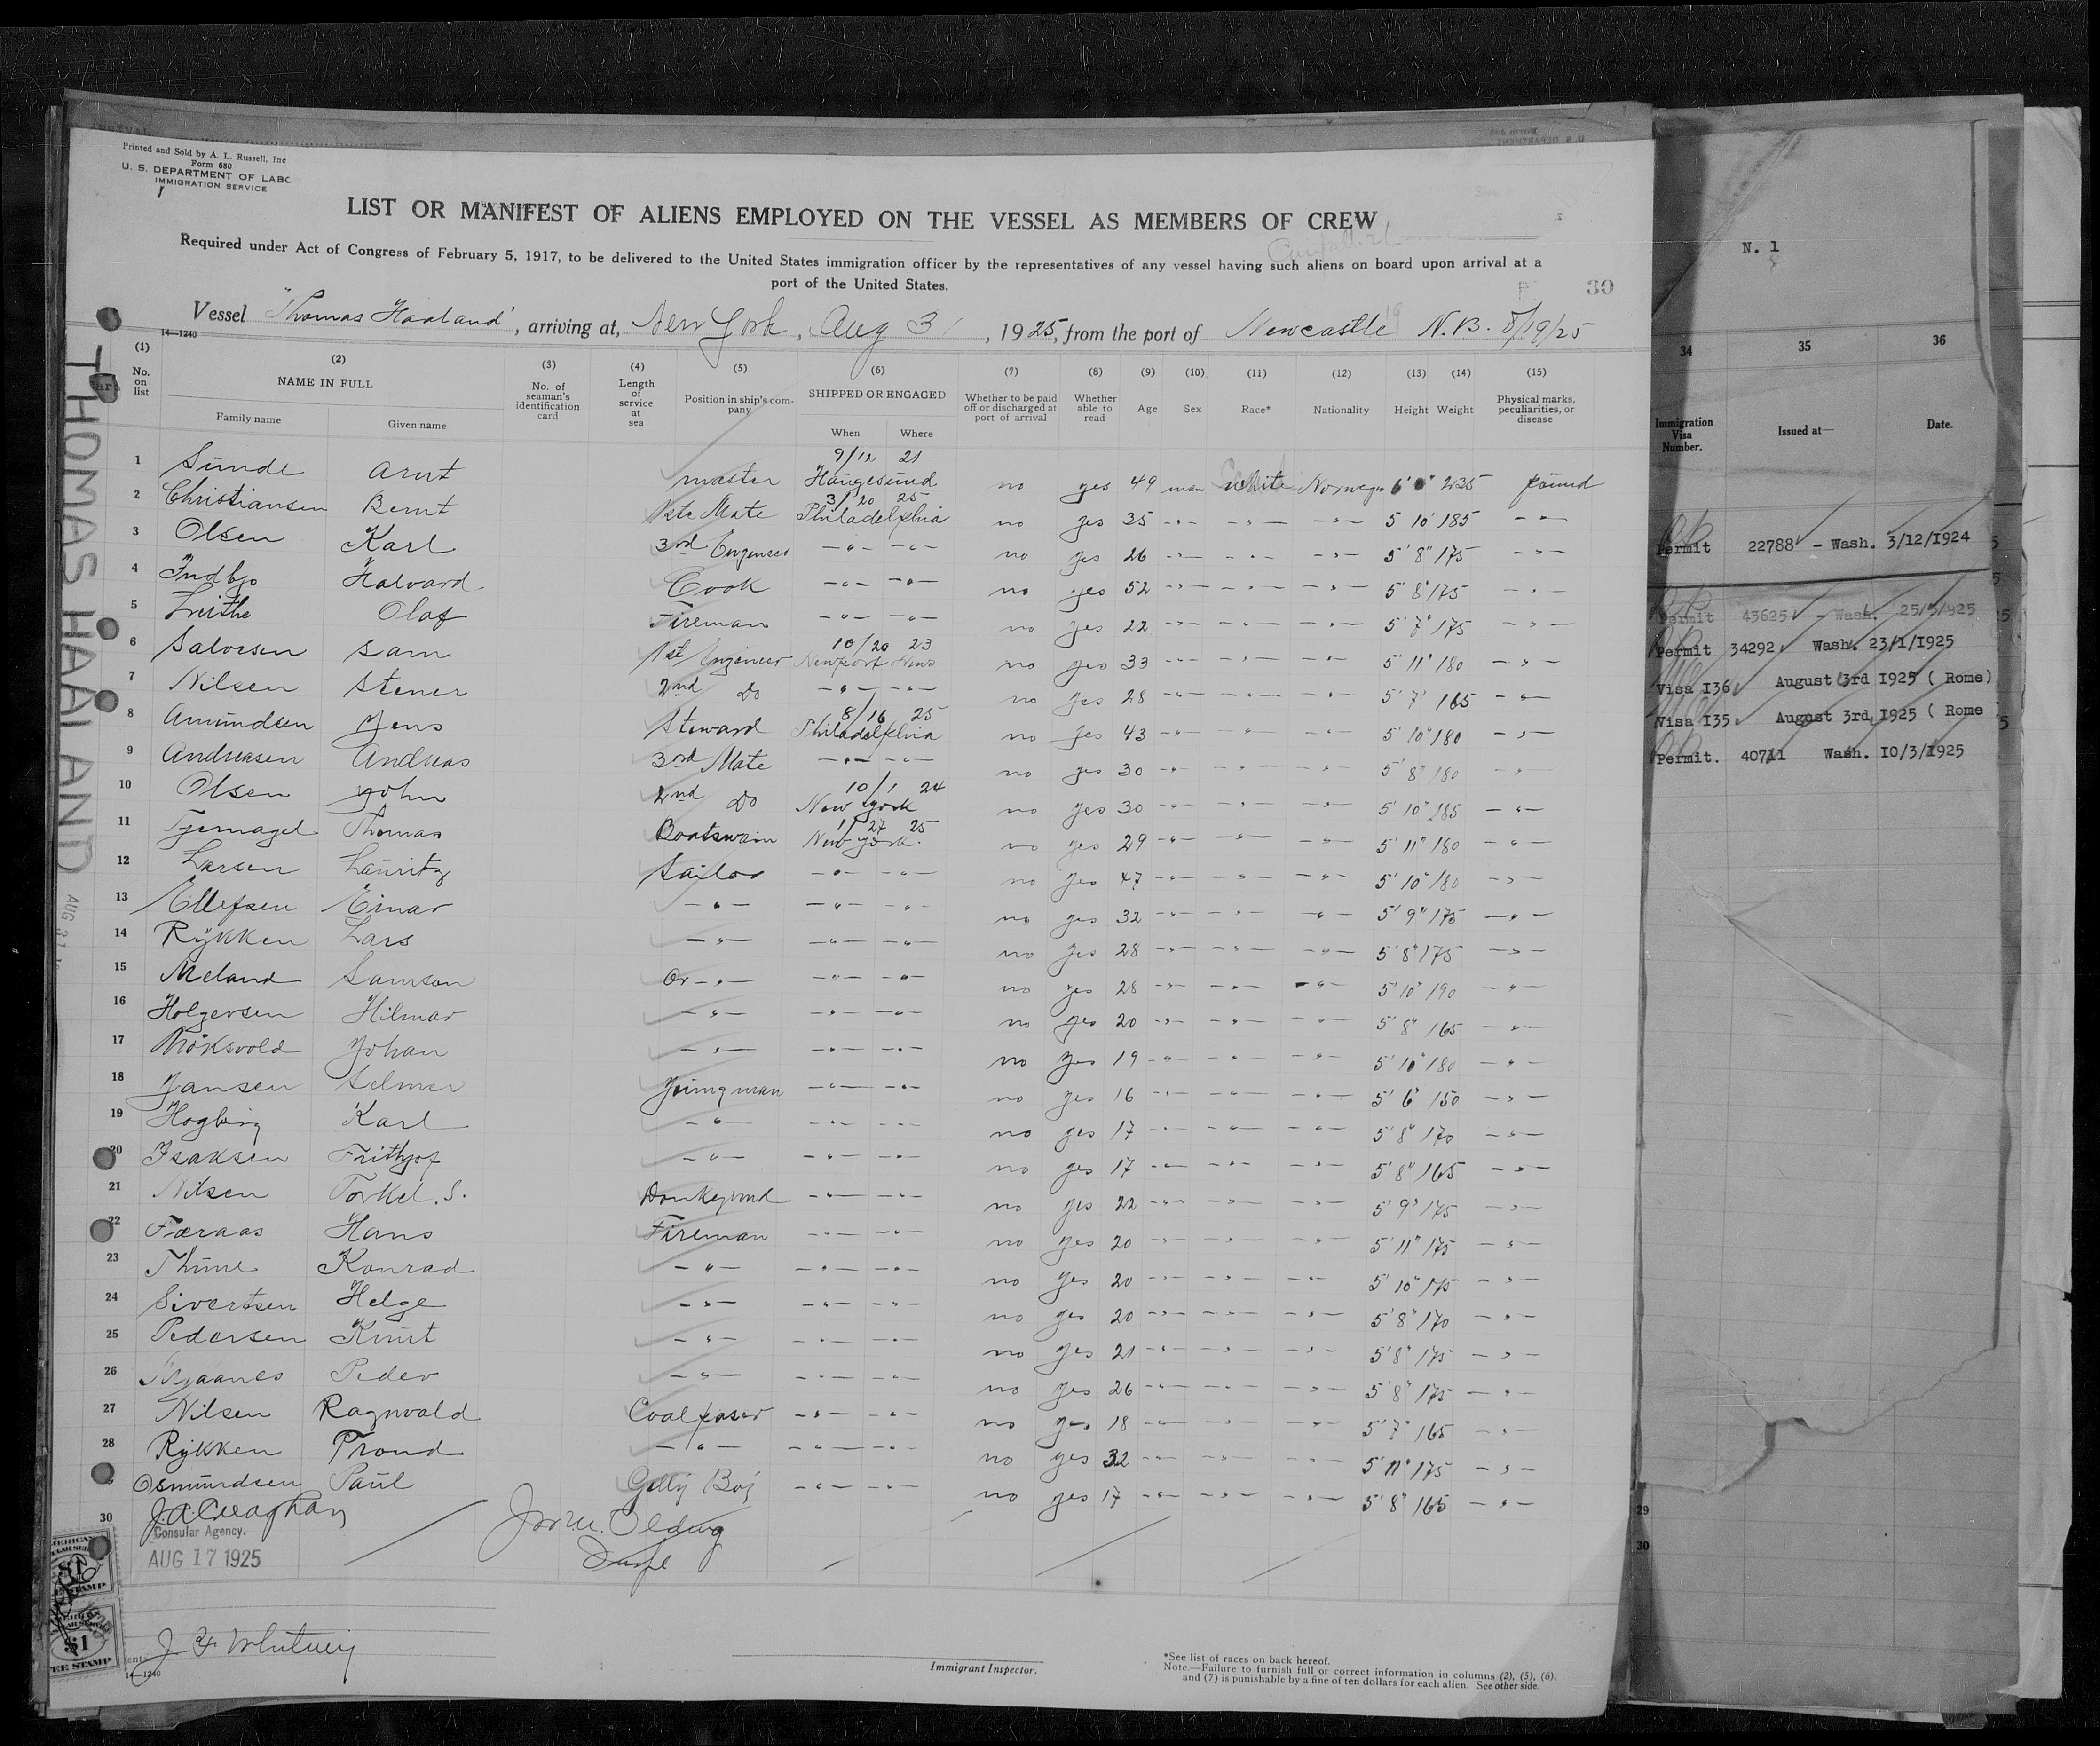 Printed and Sold by A. L. Russell, Inc
Form 680
U. S. DEPARTMENT OF LABO
IMMIGRATION SERVICE
LIST OR MANIFEST OF ALIENS EMPLOYED ON THE VESSEL AS MEMBERS OF CREW
Required under Act of Congress of February 5, 1917, to be delivered to the United States immigration officer by the representatives of any vessel having such aliens on board upon arrival at a
port of the United States.
30
Vessel "Thomas Haaland", arriving at, New York, Aug 31, 1925, from the port of Newcastle N.B. 8/19/25
14—1240
(1) (2) (3) (4) (5) (6) (7) (8) (9) (10) (11) (12) (13) (14) (15)
No. on list NAME IN FULL No. of seaman's identification card Length of service at sea Position in ship's company SHIPPED OR ENGAGED Whether to be paid off or discharged at port of arrival Whether able to read Age Sex Race* Nationality Height Weight Physical marks, peculiarities, or disease
Family name Given name When Where
9/12 21
1 Sunde Arnt master Haugesund no yes 49 man white Norwegn 6' 0" 235 found
3/20 25
2 Christiansen Bernt 1ste Mate Philadelphia no yes 35 -"- -"- -"- 5 10 185 -"-
3 Olsen Karl 3rd Engeneer -"- -"- no yes 26 -"- -"- -"- 5' 8" 175 -"-
4 Indbjo Halvard Cook -"- -"- no yes 52 -"- -"- -"- 5' 8 175 -"-
5 Olaf Fireman -"- -"- no yes 22 -"- -"- -"- 5' 7" 175 -"-
10/20 23
6 Salvesen Sam 1st Engineer Newport News no yes 33 -"- -"- -"- 5' 11" 180 -"-
7 Nilsen Stener 2nd Do -"- -"- no yes 28 -"- -"- -"- 5' 7' 165 -"-
8/16 25
8 Amundsen Jens Steward Philadelphia no yes 43 -"- -"- -"- 5' 10" 180 -"-
9 Andreasen Andreas 3rd Mate -"- -"- no yes 30 -"- -"- -"- 5' 8" 180 -"-
10/1 24
10 Olsen John 2nd Do New York no yes 30 -"- -"- -"- 5' 10" 185 -"-
1/27 25
11 Tjernagel Thomas Boatswain New York. no yes 29 -"- -"- -"- 5' 11" 180 -"-
12 Larsen Lauritz Sailor -"- -"- no yes 47 -"- -"- -"- 5' 10" 180 -"-
13 Ellefsen Einar -"- -"- -"- no yes 32 -"- -"- -"- 5' 9" 175 -"-
14 Rykken Lars -"- -"- -"- no yes 28 -"- -"- -"- 5' 8" 175 -"-
15 Meland Samson Or -"- -"- -"- no yes 28 -"- -"- -"- 5' 10" 190 -"-
16 Holgersen Hilmar -"- -"- -"- no yes 20 -"- -"- -"- 5' 8" 165 -"-
17 Johan -"- -"- -"- no yes 19 -"- -"- -"- 5' 10" 180 -"-
18 Jansen Selmer Youngman -"- -"- no yes 16 -"- -"- -"- 5' 6" 150 -"-
19 Karl -"- -"- -"- no yes 17 -"- -"- -"- 5' 8" 170 -"-
20 Isaksen Frithjof -"- -"- -"- no yes 17 -"- -"- -"- 5' 8" 165 -"-
21 Nilsen Torkel. S. -"- -"- no yes 22 -"- -"- -"- 5' 9" 175 -"-
22 Færaas Hans Fireman -"- -"- no yes 20 -"- -"- -"- 5' 11" 175 -"-
23 Thime Konrad -"- -"- -"- no yes 20 -"- -"- -"- 5' 10" 175 -"-
24 Sivertsen Helge -"- -"- -"- no yes 20 -"- -"- -"- 5' 8" 170 -"-
25 Pedersen Knut -"- -"- -"- no yes 21 -"- -"- -"- 5' 8" 175 -"-
26 Peder -"- -"- -"- no yes 26 -"- -"- -"- 5' 8" 175 -"-
27 Nilsen Ragnvald Coalpaser -"- -"- no yes 18 -"- -"- -"- 5' 7' 165 -"-
28 Rykken Trond -"- -"- -"- no yes 32 -"- -"- -"- 5' 11" 175 -"-
Osmundsen Paul Gally Boy -"- -"- no yes 17 -"- -"- -"- 5' 8" 165 -"-
30
Consular Agency.
AUG 17 1925
J. F. Whitney
14—1240
Immigrant Inspector.
*See list of races on back hereof.
Note.—Failure to furnish full or correct information in columns (2), (5), (6),
and (7) is punishable by a fine of ten dollars for each alien. See other side.
THOMAS HAALAND AUG 31
$1
$1
FEE STAMP
N. 1
34 35 36
Immigration Visa Number. Issued at— Date.
Permit 22788 - Wash. 3/12/1924
Permit 43625 - Wash. 25/5/925
Permit 34292 Wash. 23/1/1925
Visa I36 August 3rd 1925 ( Rome)
Visa I35 August 3rd 1925 ( Rome
Permit. 40711 Wash. 10/3/1925
29
30